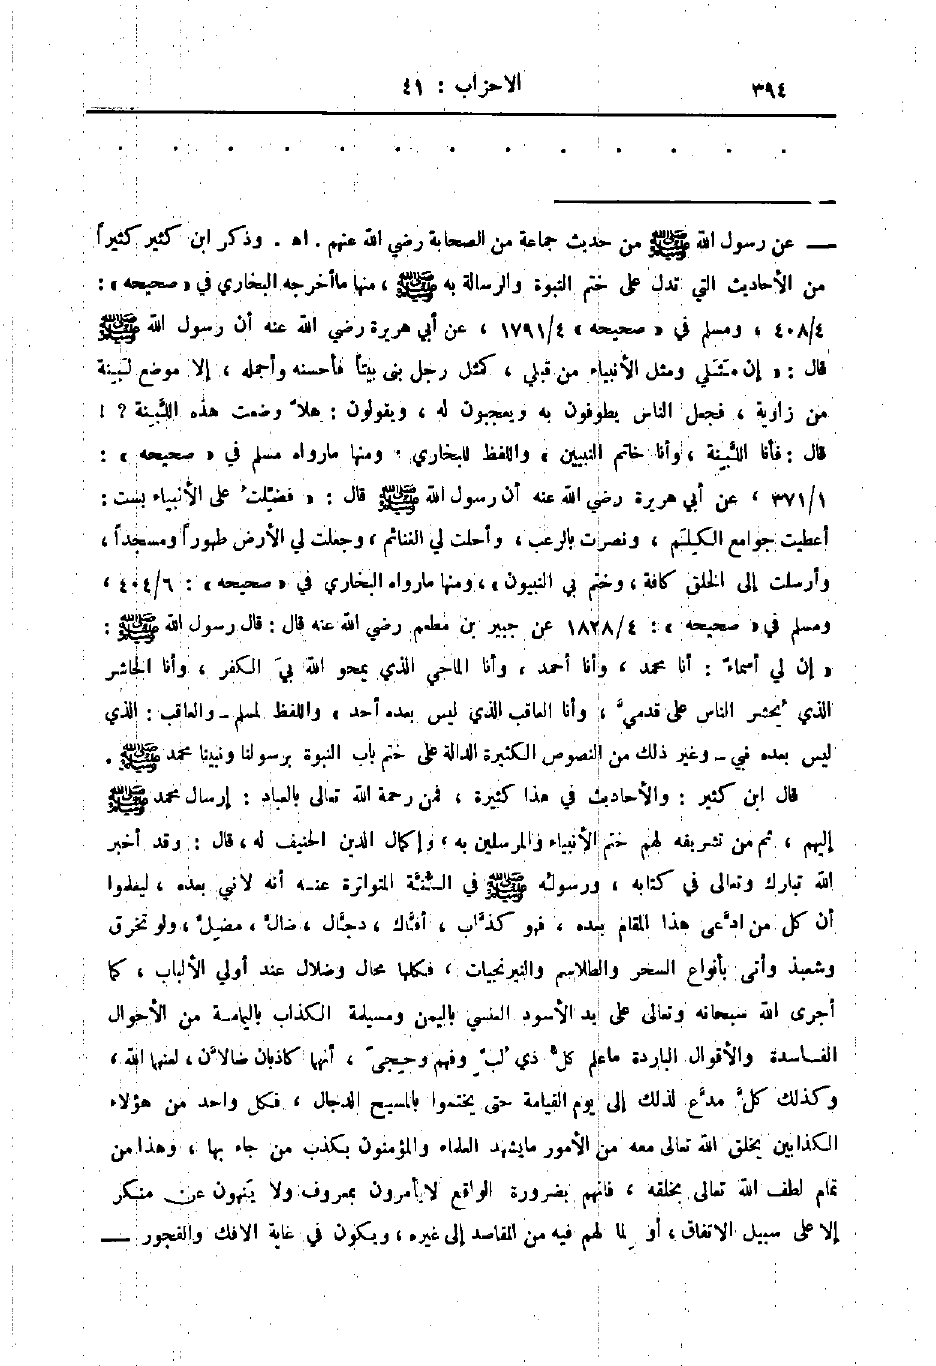 ٣٩٤
الاحزاب : ٤١
. . . . . . . . . . . . .
— عن رسول الله ﷺ من حديث جماعة من الصحابة رضي الله عنهم . اه . وذكر ابن كثير كثيراً
من الأحاديث التي تدل على ختم النبوة والرسالة به ﷺ ، منها ما أخرجه البخاري في « صحيحه » :
٤٠٨/٤ ، ومسلم في « صحيحه » ١٧٩١/٤ ، عن أبي هريرة رضي الله عنه أن رسول الله ﷺ
قال : « إن مَثَلي ومثل الأنبياء من قبلي ، كمثل رجل بنى بيتاً فأحسنه وأجمله ، إلا موضع لَبِينة
من زاوية ، فجعل الناس يطوفون به ويعجبون له ، ويقولون : هلاّ وضعت هذه اللَّبينة ؟ !
قال : فأنا اللَّبِينة ، وأنا خاتم النبيين » واللفظ للبخاري ؛ ومنها مارواه مسلم في « صحيحه » :
٣٧١/١ ، عن أبي هريرة رضي الله عنه أن رسول الله ﷺ قال : « فضِّلتُ على الأنبياء بست :
أعطيت جوامع الكلِم ، ونصرت بالرعب ، وأحلت لي الغنائم ، وجعلت لي الأرض طهوراً ومسجداً ،
وأرسلت إلى الخلق كافة ، وختم بي النبيون » ، ومنها مارواه البخاري في « صحيحه » : ٤٠٤/٦ ،
ومسلم في « صحيحه » : ١٨٢٨/٤ عن جبير بن مطعم رضي الله عنه قال : قال رسول الله ﷺ :
« إن لي أسماءً : أنا محمد ، وأنا أحمد ، وأنا الماحي الذي يمحو الله بيَ الكفر ، وأنا الحاشر
الذي يُحشر الناس على قدميَّ ، وأنا العاقب الذي ليس بعده أحد » واللفظ لمسلم ـ والعاقب : الذي
ليس بعده نبي ـ وغير ذلك من النصوص الكثيرة الدالة على ختم باب النبوة برسولنا ونبينا محمد ﷺ .
قال ابن كثير : والأحاديث في هذا كثيرة ، فمن رحمة الله تعالى بالعباد : إرسال محمد ﷺ
إليهم ، ثم من تشريفه لهم ختم الأنبياء والمرسلين به ، وإكمال الدين الحنيف له ، قال : وقد أخبر
الله تبارك وتعالى في كتابه ، ورسولُه ﷺ في السُّنَّة المتواترة عنه أنه لانبي بعده ، ليعلموا
أن كل من ادَّعى هذا المقام بعده ، فهو كذَّاب ، أفَّاك ، دجَّال ، ضالّ ، مضِلّ ، ولو تخرق
وشعبذ وأتى بأنواع السحر والطلاسم والنيرنجيات ، فكلها محال وضلال عند أولي الألباب ، كما
أجرى الله سبحانه وتعالى على يد الأسود العنسي باليمن ومسيلمة الكذاب باليمامة من الأحوال
الفاسدة والأقوال الباردة ماعلم كلُّ ذي لُبٍّ وفهم وحِجىً ، أنها كاذبان ضالاَّن ، لعنها الله ،
وكذلك كلُّ مدَّعٍ لذلك إلى يوم القيامة حتى يختموا بالمسيح الدجال ، فكل واحد من هؤلاء
الكذابين يخلق الله تعالى معه من الأمور مايشهد العلماء والمؤمنون بكذب من جاء بها ، وهذا من
تمام لطف الله تعالى بخلقه ، فانهم بضرورة الواقع لايأمرون بمعروف ولا يَنهون عن منكر
إلا على سبيل الاتفاق ، أو لِما لهم فيه من المقاصد إلى غيره ، ويكون في غاية الافك والفجور —